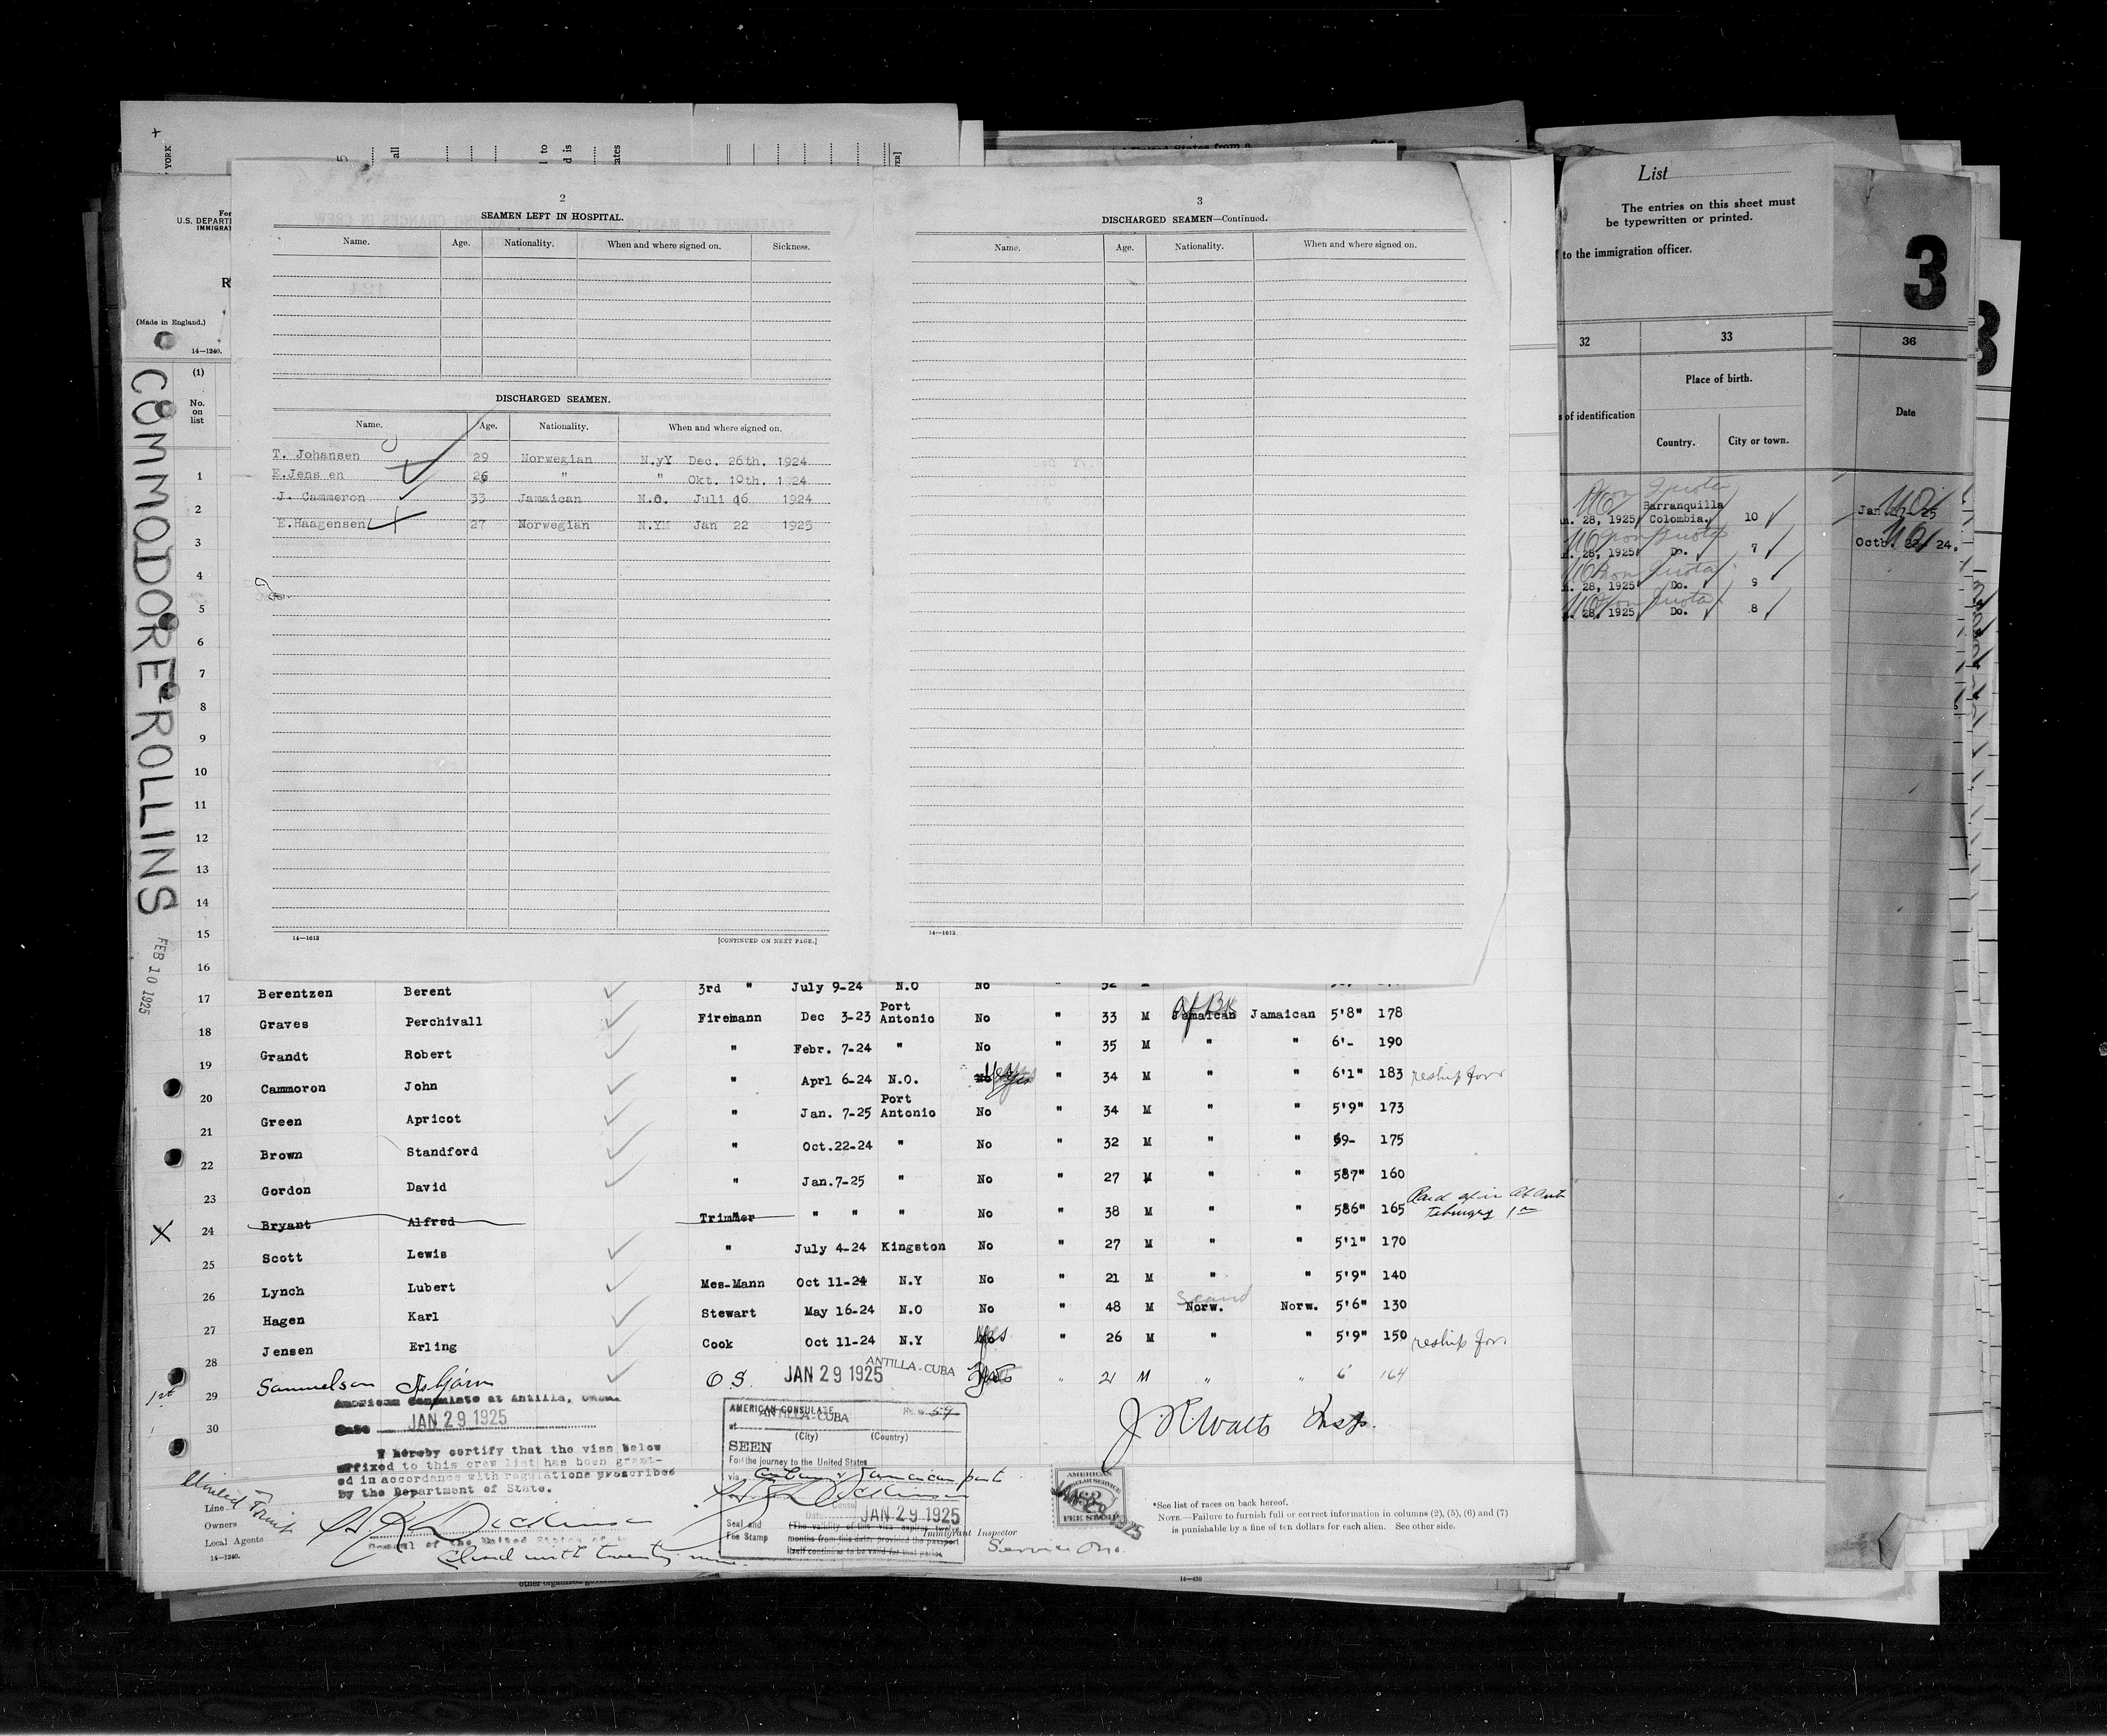 2
SEAMEN LEFT IN HOSPITAL.
Name. Age. Nationality. When and where signed on. Sickness.
DISCHARGED SEAMEN.
Name. Age. Nationality. When and where signed on.
T. Johansen 29 Norwegian N.yY Dec. 26th. 1924
E.Jens en 26 " " Okt. 10th. 1924
J. Cammeron 33 Jamaican N.O. Juli 16 1924
E.Haagensen 27 Norwegian N.YM Jan 22 1925
14—1613 [CONTINUED ON NEXT PAGE.]
3
DISCHARGED SEAMEN—Continued.
Name. Age. Nationality. When and where signed on.
14—1613
List
The entries on this sheet must
be typewritten or printed.
to the immigration officer.
3
32 33 36
Place of birth.
of identification
Country. City or town.
Date
Non Quota
Barranquilla
28, 1925 Colombia. 10
28, 1925 Do. 7
28, 1925 Do. 9
28, 1925 Do. 8
Octb. 24.
YORK
U.S. DEPARTI
IMMIGRAT
(Made in England.)
14—1240.
(1)
No.
on
list
COMMODORE ROLLINS
FEB 10 1925
1
2
3
4
5
6
7
8
9
10
11
12
13
14
15
16
17 Berentzen Berent 3rd " July 9-24 N.O No " 32 M
18 Graves Perchivall Firemann Dec 3-23 Port Antonio No " 33 M Af Blk Jamaican Jamaican 5'8" 178
19 Grandt Robert " Febr. 7-24 " No " 35 M " " 6'- 190
20 Cammoron John " Aprl 6-24 N.O. No Yes " 34 M " " 6'1" 183 reship for
21 Green Apricot " Jan. 7-25 Port Antonio No " 34 M " " 5'9" 173
22 Brown Standford " Oct.22-24 " No " 32 M " " 59- 175
23 Gordon David " Jan.7-25 " No " 27 M " " 587" 160
24 Bryant Alfred Trimmer " " " No " 38 M " " 586" 165 Paid off in
25 Scott Lewis " July 4-24 Kingston No " 27 M " " 5'1" 170
26 Lynch Lubert Mes-Mann Oct 11-24 N.Y No " 21 M " " 5'9" 140
27 Hagen Karl Stewart May 16-24 N.O No " 48 M Scand Norw. Norw. 5'6" 130
28 Jensen Erling Cook Oct 11-24 N.Y Yes " 26 M " " 5'9" 150 reship for
29 Samuelsen Asbjörn O.S. JAN 29 1925 ANTILLA-CUBA " 21 M " " 6' 164
1st
30
American Consulate at Antilla,
Date JAN 29 1925
I hereby certify that the visa below
affixed to this crew list has been grant-
ed in accordance with regulations prescribed
by the Department of State.
Consul of the United States of
Closed with twenty nine.
United Fruit
Line
Owners
Local Agents
14—1240.
AMERICAN CONSULATE No. 59
at ANTILLA-CUBA
(City) (Country)
SEEN
For the journey to the United States
via Cuban & Jamaican port
Consul
Date JAN 29 1925
Seal and
Fee Stamp
(The validity of this visa expires twelve
months from this date, provided the passport
itself continues to be valid for that period.
J.R. Walts Insp.
Immigrant Inspector
AMERICAN
CONSULAR SERVICE
FEE STAMP
*See list of races on back hereof.
NOTE.—Failure to furnish full or correct information in columns (2), (5), (6) and (7)
is punishable by a fine of ten dollars for each alien. See other side.